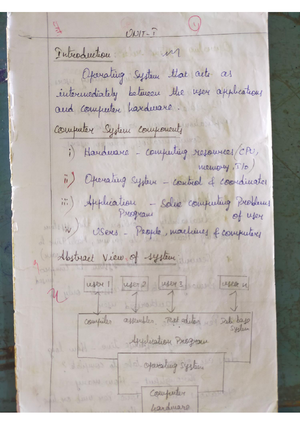 UNIT-I
Introduction
Operating System that acts as
intermediately between the user applications
and computer hardware.
Computer System Components
i) Hardware - Computing resources (CPU,
memory, I/O)
ii) Operating System - Control & coordinates
iii) Application - Solve computing Problems
Program of user
iv) Users - People, machines & computers
Abstract View of System
user 1 user 2 user 3 user n
Compiler assembler Text editor Data base
System
Application Program
Operating System
Computer
hardware